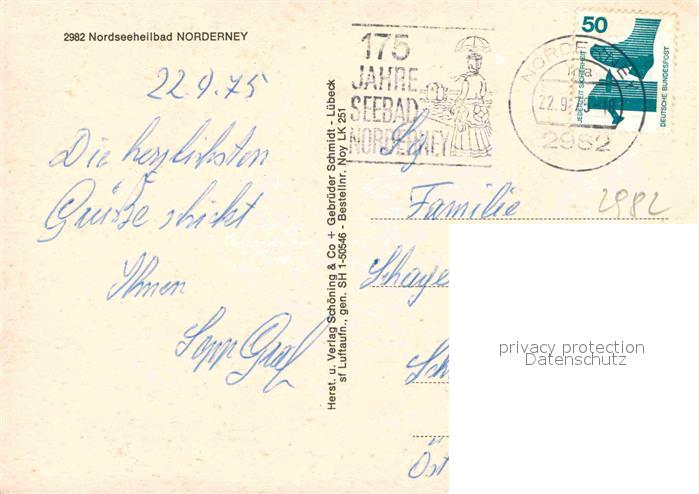 2982 Nordseeheilbad NORDERNEY
22.9.75
Die herzlichsten
Grüße schickt
Ihnen
Sepp Graf
Herst. u. Verlag Schöning & Co + Gebrüder Schmidt - Lübeck
sf Luftaufn., gen. SH 1-50546 - Bestellnr. Noy LK 251
175
JAHRE
SEEBAD
NORDERNEY
NORDERNEY
22.9.75-18
2982
50
JEDERZEIT SICHERHEIT
DEUTSCHE BUNDESPOST
Familie
2982
privacy protection
Datenschutz